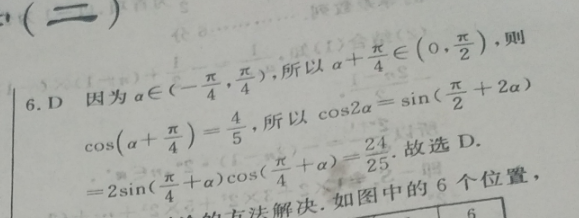 (二)
6. D 因为 α∈(-π/4, π/4), 所以 α+π/4∈(0, π/2), 则
cos(α+π/4)=4/5, 所以 cos2α=sin(π/2+2α)
=2sin(π/4+α)cos(π/4+α)=24/25. 故选 D.
方法解决. 如图中的 6 个位置,
6